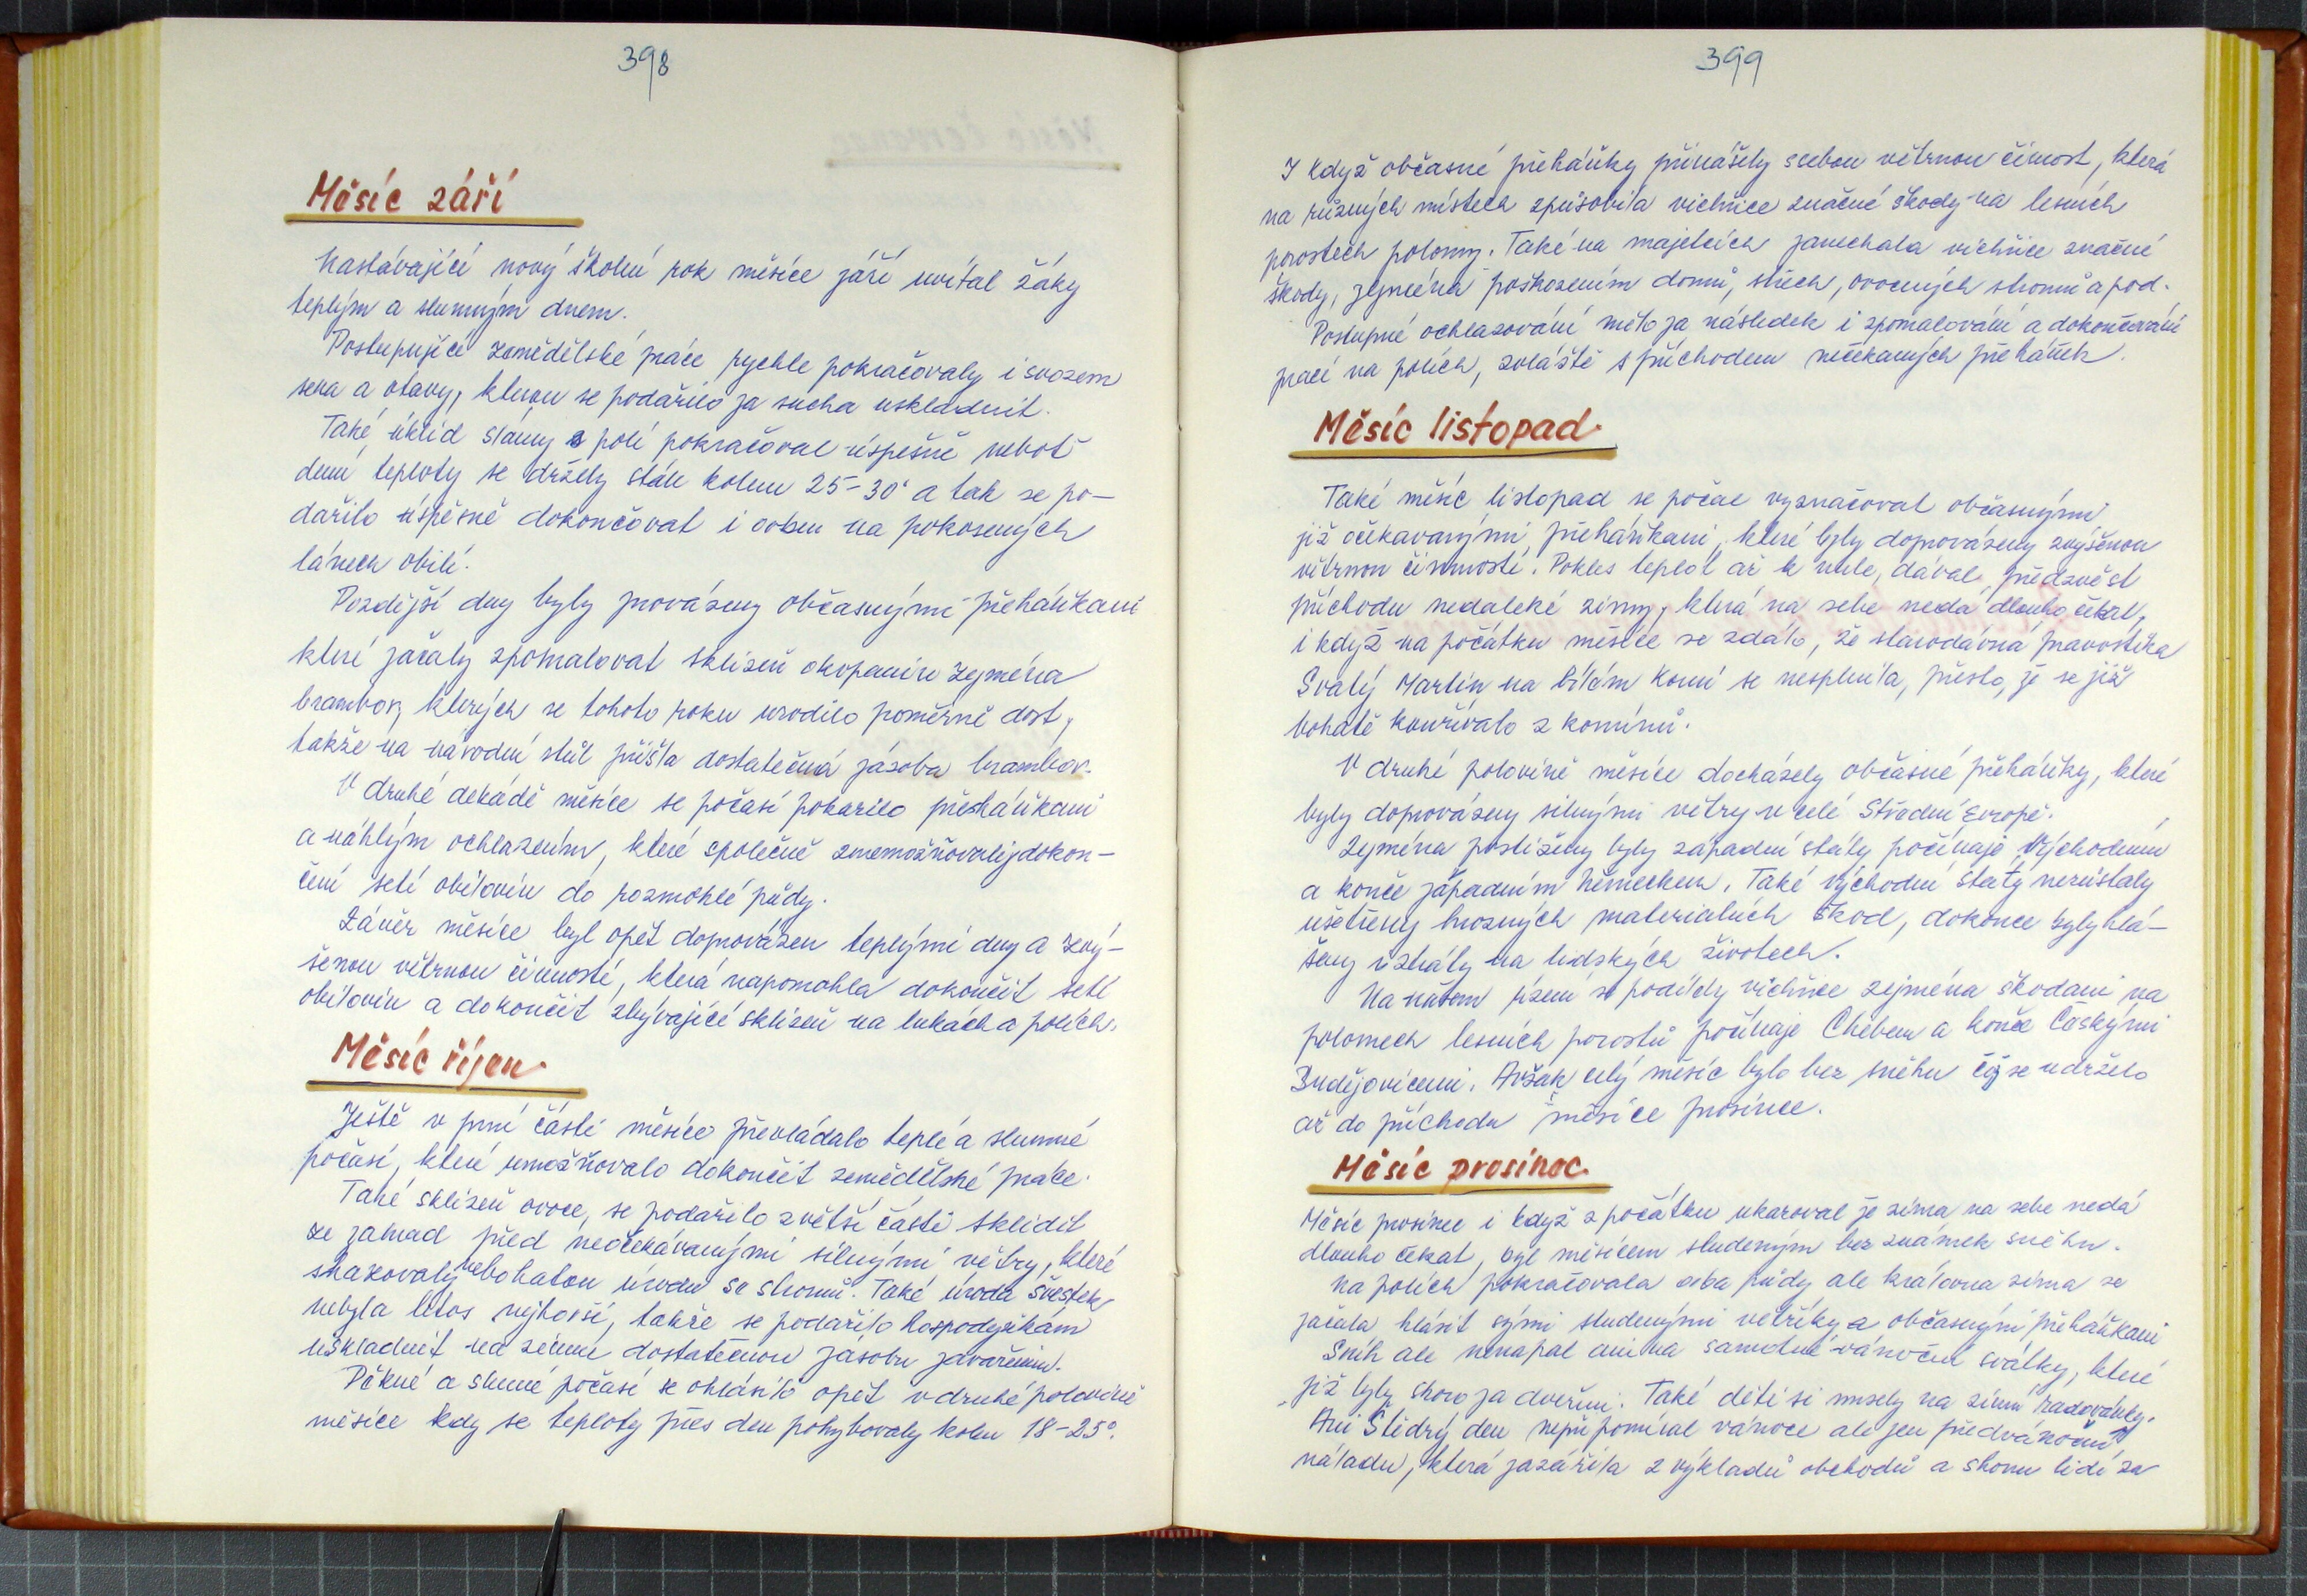 398
Měsíc září
Nastávající nový školní rok měsíce září uvítal žáky
teplým a slunným dnem.
Postupující zemědělské práce rychle pokračovaly i svozem
sena a otavy, kterou se podařilo za sucha uskladnit.
Také úklid slámy s polí pokračoval úspešně neboť
denní teploty se držely stále kolem 25-30° a tak se po-
dařilo úspěšně dokončovat i orbu na pokosených
lánech obilí.
Pozdější dny byly prováseny občasnými přeháňkami
které začaly zpomalovat sklizeň okopanin zejména
brambor, kterých se tohoto roku urodilo poměrně dost,
takže na národní stůl přišla dostatečná zásoba brambor.
V druhé dekádě měsíce se počasí pokazilo přeháňkami
a náhlým ochlazením, které společně znemožňovaly dokon-
čení setí obilovin do rozmohlé půdy.
Závěr měsíce byl opět doprovázen teplými dny a zvý-
šenou větrnou činností, která napomohla dokončit setí
obilovin a dokončit zbývající sklizeň na lukách a polích.
Měsíc říjen.
Ještě v prní části měsíce převládalo teplé a slunné
počasí, které umožňovalo dokončit zemědělské práce.
Také sklizeň ovoce, se podařilo zvětší části sklidit
ze zahrad před neočekávanými silnými větry, které
srazovaly nebohatou úrodu se stromů. Také úroda švestek
nebyla letos nejhorší, takže se podařilo hospodyňkám
uskladnit na zimu dostatečnou zásobu zavařenin.
Pěkné a slunné počasí se ohlásilo opět v druhé polovině
měsíce kdy se teploty přes den pohybovaly kolem 18-25°.
399
I když občasné přeháňky přinášely sebou větrnou činost, která
na různých místech způsobila vichřice značné škody na lesních
porostech polomy. Také na majetcích zanechala vichřice značné
škody, zejména poškozením domů, střech, ovocných stromů a pod.
Postupné ochlazování mělo za následek i zpomalování a dokončování
prací na polích, zvláště s příchodem nečekaných přeháněk.
Měsíc listopad.
Také měsíc listopad se počal vyznačovat občasnými
již očekavanými přeháňkami, které byly doprovázeny zvýšenou
větrnou činností. Pokles teplot až k nule, dával předzvěst
příchodu nedaleké zimy, která na sebe nedá dlouho čekat,
i když na počátku měsíce se zdálo, že starodávná pranostika
Svatý Martin na bílém koni se nesplnila, přesto, že se již
bohatě kouřívalo z komínů.
V druhé polovině měsíce docházely občasné přeháňky, které
byly doprovázeny silnými větry v celé Střední Evropě.
Zejména postiženy byly západní státy počínaje Východním
a konče západním Německem. Také východní státy nezůstaly
ušetřeny hrozných materialních škod, dokonce byly hlá-
šeny i ztráty na lidských životech.
Na našem území se podílely vichřice zejména škodami na
polomech lesních porostů počínaje Chebem a konče Českými
Budějovicemi. Avšak celý měsíc bylo bez sněhu což se udrželo
až do příchodu měsíce prosince.
Měsíc prosinec.
Měsíc prosinec i když z počátku ukazoval že zima na sebe nedá
dlouho čekat, byl měsícem studeným bez známek sněhu.
Na polích pokračovala orba půdy ale královna zima se
začala hlásit svými studenými větříky a občasnými přeháňkami
Sníh ale nenapal ani na samotné vánoční svátky, které
již byly skoro za dveřmi. Také děti si musely na zimní radovánky.
Ani Štědrý den nepřipomíral vánoce ale jen předvánoční
náladu, která zazářila z výkladů obchodů a shonu lidí za